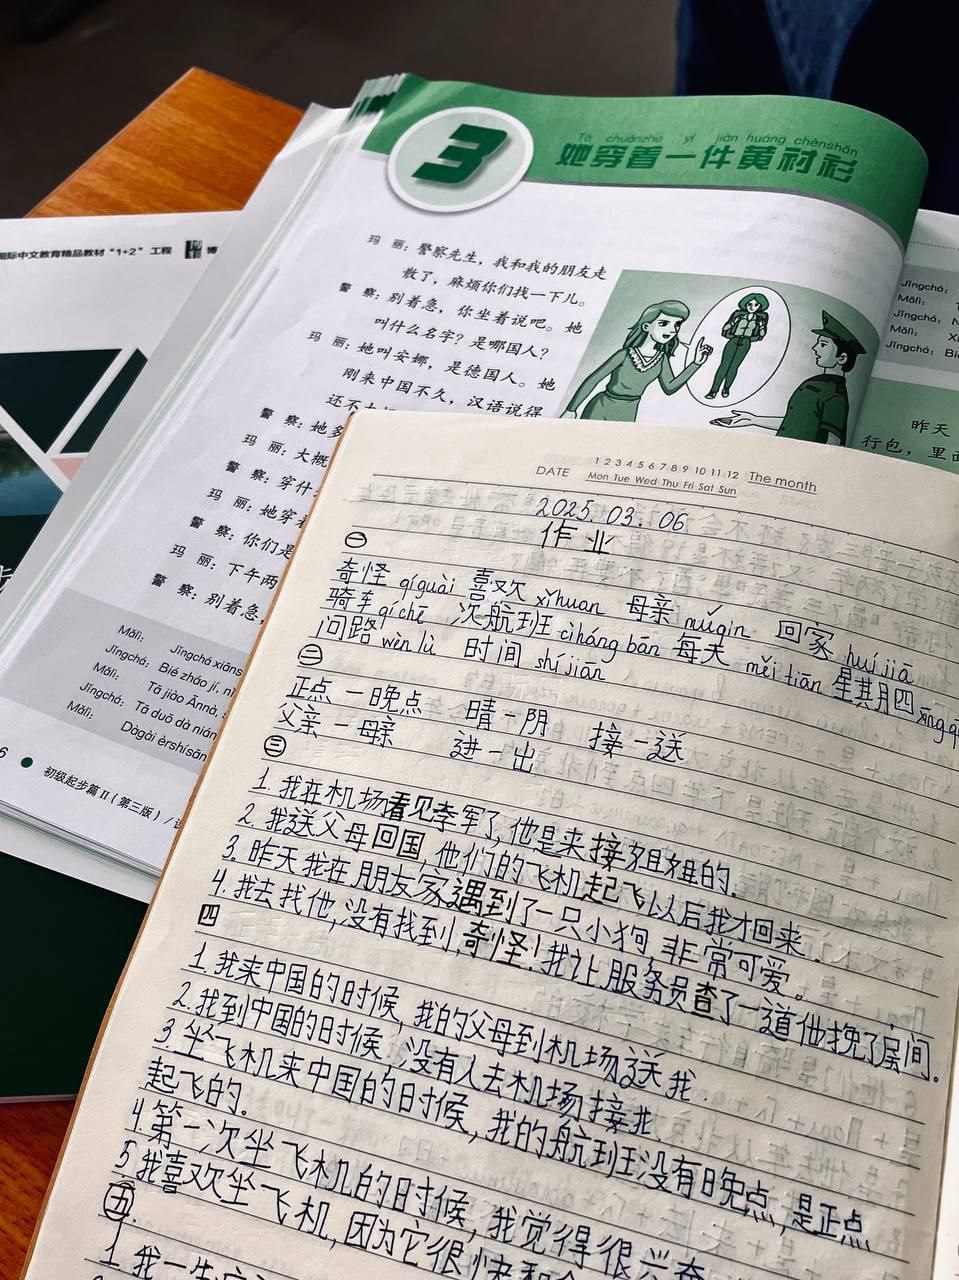 Tā chuānzhe yí jiàn huáng chènshān
3 她穿着一件黄衬衫
国际中文教育精品教材“1+2”工程
玛 丽：警察先生，我和我的朋友走
散了，麻烦你们找一下儿。
警 察：别着急，你坐着说吧。她
叫什么名字？是哪国人？
玛 丽：她叫安娜，是德国人。她
刚来中国不久，汉语说得
还不太
警 察：她多
玛 丽：大概
警 察：穿什
玛 丽：她穿着
警 察：你们是
玛 丽：下午两
警 察：别着急，
Mǎlì: Jǐngchá xiāns
Jǐngchá: Bié zháo jí, nǐ
Mǎlì: Tā jiào Ānnà,
Jǐngchá: Tā duō dà nián
Mǎlì: Dàgài èrshísān
6 初级起步篇II（第三版）/
Jǐngchá:
Mǎlì:
Jǐngchá:
Mǎlì:
Jǐngchá: Bié
昨天
行包，里面
1 2 3 4 5 6 7 8 9 10 11 12 The month
DATE Mon Tue Wed Thu Fri Sat Sun
2025. 03. 06
作业
一
奇怪 qíguài 喜欢 xǐhuan 母亲 mǔqin 回家 huí jiā
骑车 qí chē 次航班 cìháng bān 每天 měi tiān 星其月四 xīng
问路 wèn lù 时间 shíjiān
二
正点 一 晚点 晴 一 阴 接 一 送
父亲 一 母亲 进 一 出
三
1. 我在机场看见李军了, 他是来接姐姐的.
2. 我送父母回国, 他们的飞机起飞以后我才回来.
3. 昨天我在朋友家遇到了一只小狗, 非常可爱。
4. 我去找他, 没有找到, 奇怪! 我让服务员查了一道他挽了房间.
四
1. 我来中国的时候, 我的父母到机场送我.
2. 我到中国的时候, 没有人去机场接我
3 坐飞机来中国的时候, 我的航班没有晚点, 是正点
起飞的.
4. 第一次坐飞机的时候, 我觉得很兴奋
5 我喜欢坐飞机, 因为它很快和
五.
1 我一生